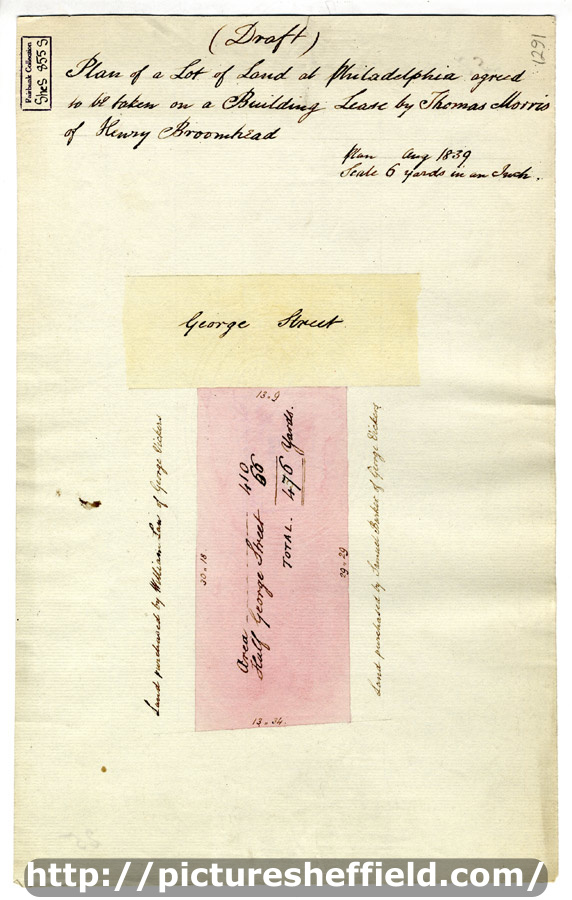 Fairbank Collection
SheS 855 S
1291
(Draft)
Plan of a Lot of Land at Philadelphia agreed
to be taken on a Building Lease by Thomas Morris
of Henry Broomhead
Plan Aug 1839
Scale 6 yards in an Inch.
George Street
13 - 9
Land purchased by William of George Vickers
30 - 18
Area 410
Half George Street 66
TOTAL. 476 Yards.
29 - 29
Land purchased by Samuel Barker of George Vickers
13 - 34.
http://picturesheffield.com/